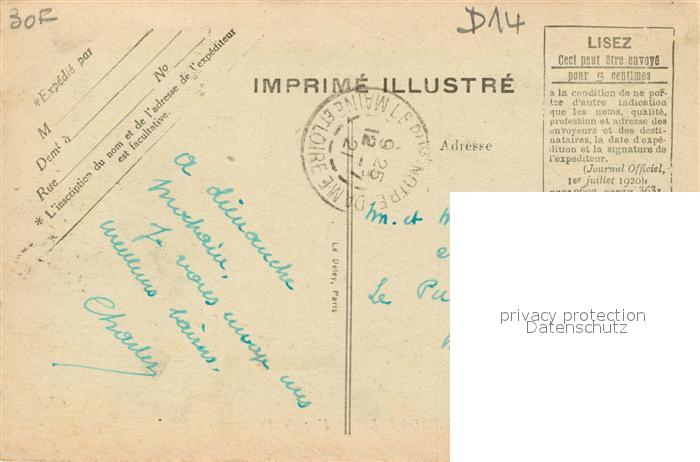 30F
D14
*Expédié par
M
No
Demt à
Rue
* L'inscription du nom et de l'adresse de l'expéditeur
est facultative.
IMPRIMÉ ILLUSTRÉ
LISEZ
Ceci peut être envoyé
pour 5 centimes
à la condition de ne por-
ter d'autre indication
que les noms, qualité,
profession et adresse des
envoyeurs et des desti-
nataires, la date d'expé-
dition et la signature de
l'expéditeur.
(Journal Officiel,
1er juillet 1920);
NOTRE DAME
MAINE ET LOIRE
9 25
12 - 7
21
Adresse
a dimanche
prochain,
Je vous envoye mes
meilleurs baisers,
Charles
Le Deley, Paris
M. et M
e
Le Pu
privacy protection
Datenschutz